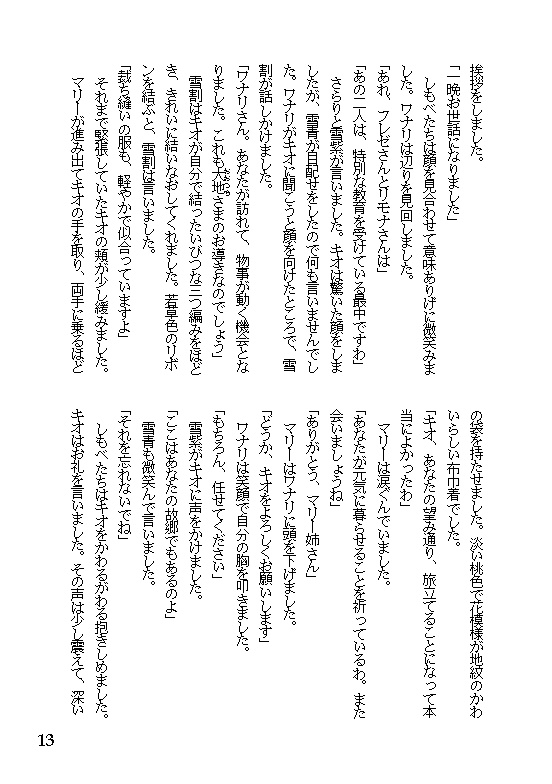 挨拶をしました。
「一晩お世話になりました」
　しもべたちは顔を見合わせて意味ありげに微笑みま
した。ワナリは辺りを見回しました。
「あれ、フレゼさんとリモナさんは」
「あの二人は、特別な教育を受けている最中ですわ」
　さらりと雪紫が言いました。キオは驚いた顔をしま
したが、雪青が目配せをしたので何も言いませんでし
た。ワナリがキオに聞こうと顔を向けたところで、雪
割が話しかけました。
「ワナリさん。あなたが訪れて、物事が動く機会とな
りました。これも大地さまのお導きなのでしょう」
　雪割はキオが自分で結ったいびつな三つ編みをほど
き、きれいに結いなおしてくれました。若草色のリボ
ンを結ぶと、雪割は言いました。
「裁ち縫いの服も、軽やかで似合っていますよ」
　それまで緊張していたキオの頬が少し緩みました。
　マリーが進み出てキオの手を取り、両手に乗るほど
の袋を持たせました。淡い桃色で花模様が地紋のかわ
いらしい布巾着でした。
「キオ、あなたの望み通り、旅立てることになって本
当によかったわ」
　マリーは涙ぐんでいました。
「あなたが元気に暮らせることを祈っているわ。また
会いましょうね」
「ありがとう、マリー姉さん」
　マリーはワナリに頭を下げました。
「どうか、キオをよろしくお願いします」
　ワナリは笑顔で自分の胸を叩きました。
「もちろん、任せてください」
　雪紫がキオに声をかけました。
「ここはあなたの故郷でもあるのよ」
　雪青も微笑んで言いました。
「それを忘れないでね」
　しもべたちはキオをかわるがわる抱きしめました。
キオはお礼を言いました。その声は少し震えて、深い
13